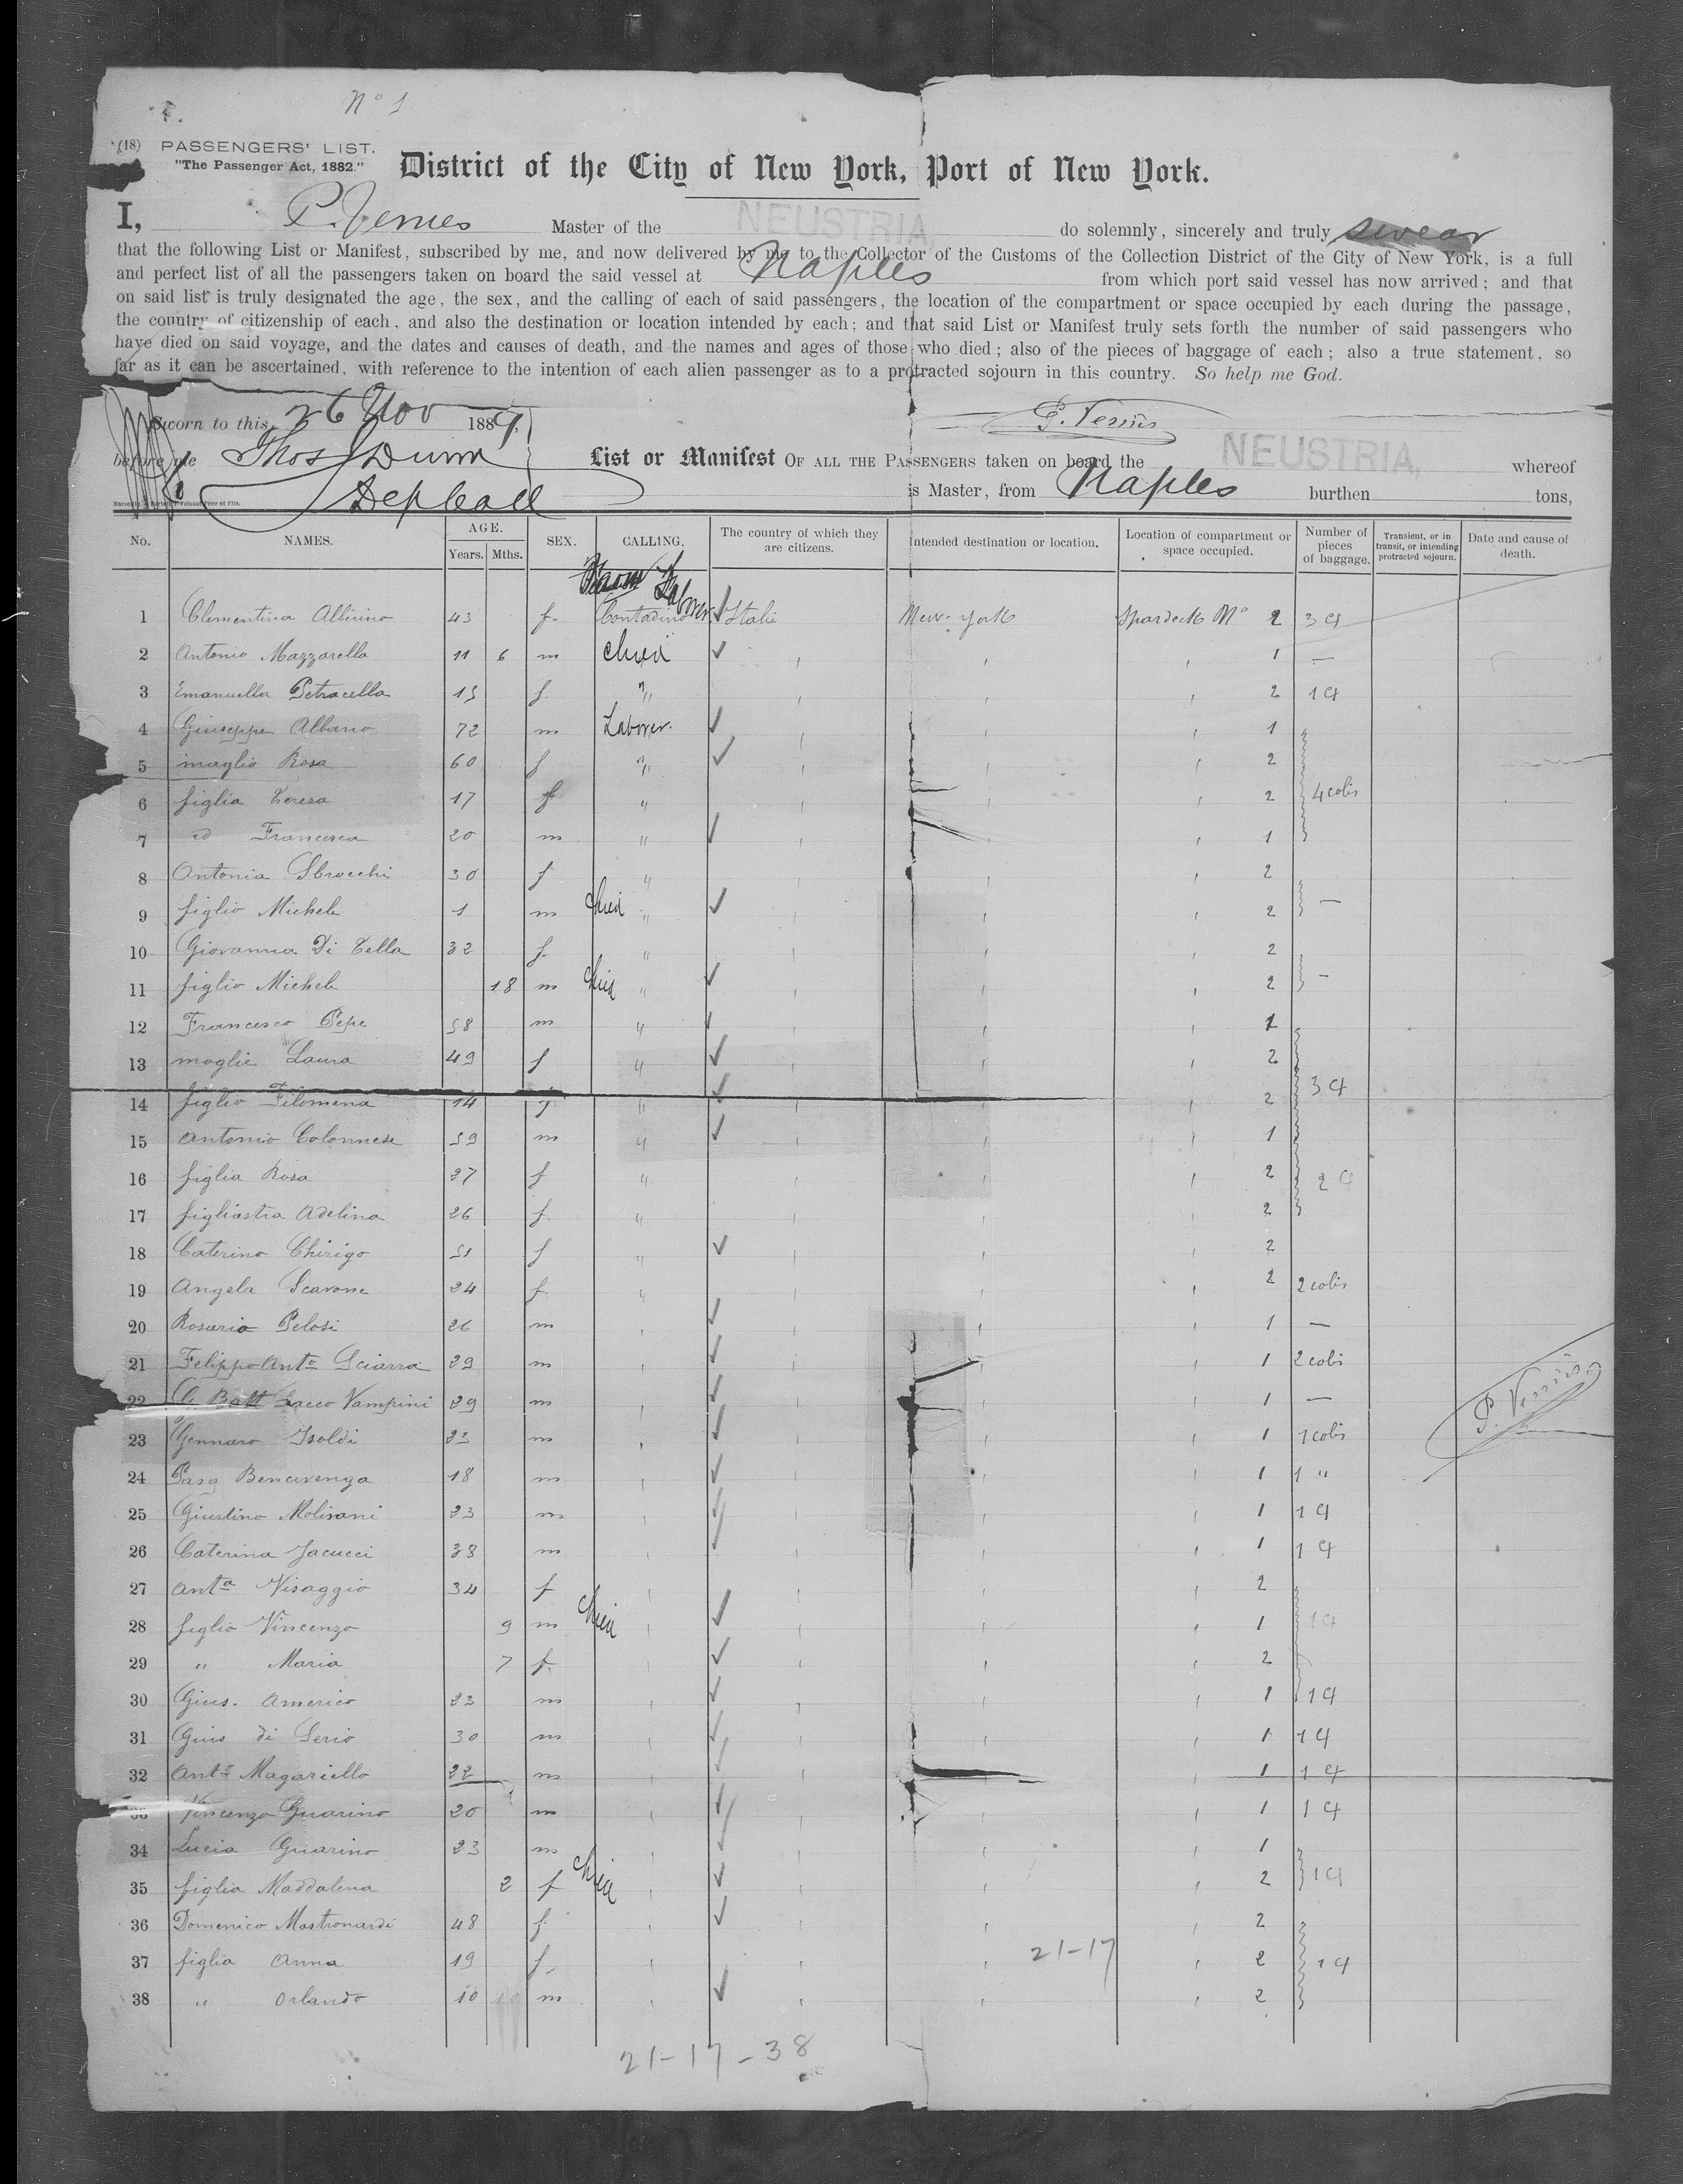 Nº 1
(18) PASSENGERS' LIST.
"The Passenger Act, 1882."
District of the City of New York, Port of New York.
I, P. Vernis Master of the NEUSTRIA do solemnly, sincerely and truly swear
that the following List or Manifest, subscribed by me, and now delivered by me to the Collector of the Customs of the Collection District of the City of New York, is a full
and perfect list of all the passengers taken on board the said vessel at Naples from which port said vessel has now arrived; and that
on said list is truly designated the age, the sex, and the calling of each of said passengers, the location of the compartment or space occupied by each during the passage,
the country of citizenship of each, and also the destination or location intended by each; and that said List or Manifest truly sets forth the number of said passengers who
have died on said voyage, and the dates and causes of death, and the names and ages of those who died; also of the pieces of baggage of each; also a true statement, so
far as it can be ascertained, with reference to the intention of each alien passenger as to a protracted sojourn in this country. So help me God.
Sworn to this 26 Nov 1889,
before me Thos Dunn
Dep Coll
List or Manifest OF ALL THE PASSENGERS taken on board the NEUSTRIA, whereof
is Master, from Naples burthen tons,
No. NAMES. AGE. Years. Mths. SEX. CALLING. The country of which they are citizens. Intended destination or location. Location of compartment or space occupied. Number of pieces of baggage. Transient, or in transit, or intending protracted sojourn. Date and cause of death.
Farm Laborer
1 Clementina Albinino 43 f. Contadino Italie New-York Spardeck Nº 2 3 c/
2 Antonio Mazzarella 11 6 m child 1 —
3 Emanuella Petracella 15 f. " 2 1 c/
4 Giuseppe Albano 72 m Laborer. 1
5 moglie Rosa 60 f " 2
6 figlia Teresa 17 f " 2 4 colis
7 id Francesca 20 m " 1
8 Antonia Sbrocchi 30 f " 2
9 figlio Michele 1 m child " 2 —
10 Giovanna Di Tella 32 f. " 2
11 figlio Michele 18 m child " 2 —
12 Francesco Pepe 58 m " 1
13 moglie Laura 49 f " 2
14 figlia Filomena 14 f " 2 3 c/
15 Antonio Colonnese 59 m " 1
16 figlia Rosa 27 f " 2 2 c/
17 figliastra Adelina 26 f. " 2
18 Caterino Chirigo 51 f " 2
19 Angela Scarone 24 f " 2 2 colis
20 Rosario Pelosi 26 m 1 —
21 Felippo Antº Sciarra 29 m 1 2 colis
22 G. Batt Sacco Vampini 29 m 1 —
23 Gennaro Isoldi 23 m 1 1 colis
24 Pasq Bencivenga 18 m 1 1 "
25 Giustino Molisani 23 m 1 1 c/
26 Caterina Jacucci 38 m 1 1 c/
27 Antª Visaggio 34 f 2
28 figlio Vincenzo 9 m child 1 1 c/
29 " Maria 7 f. 2
30 Gius. Americo 23 m 1 1 c/
31 Gius di Serio 30 m 1 1 c/
32 Antº Magariello 22 m 1 1 c/
33 Vincenzo Guarino 20 m 1 1 c/
34 Lucia Guarino 23 m 1
35 figlia Maddalena 2 f child 2 1 c/
36 Domenico Mastronardi 48 f. 2
37 figlia Anna 19 f. 2 1 c/
38 " Orlando 10 m 2
P. Vernis
21-17
21-17-38